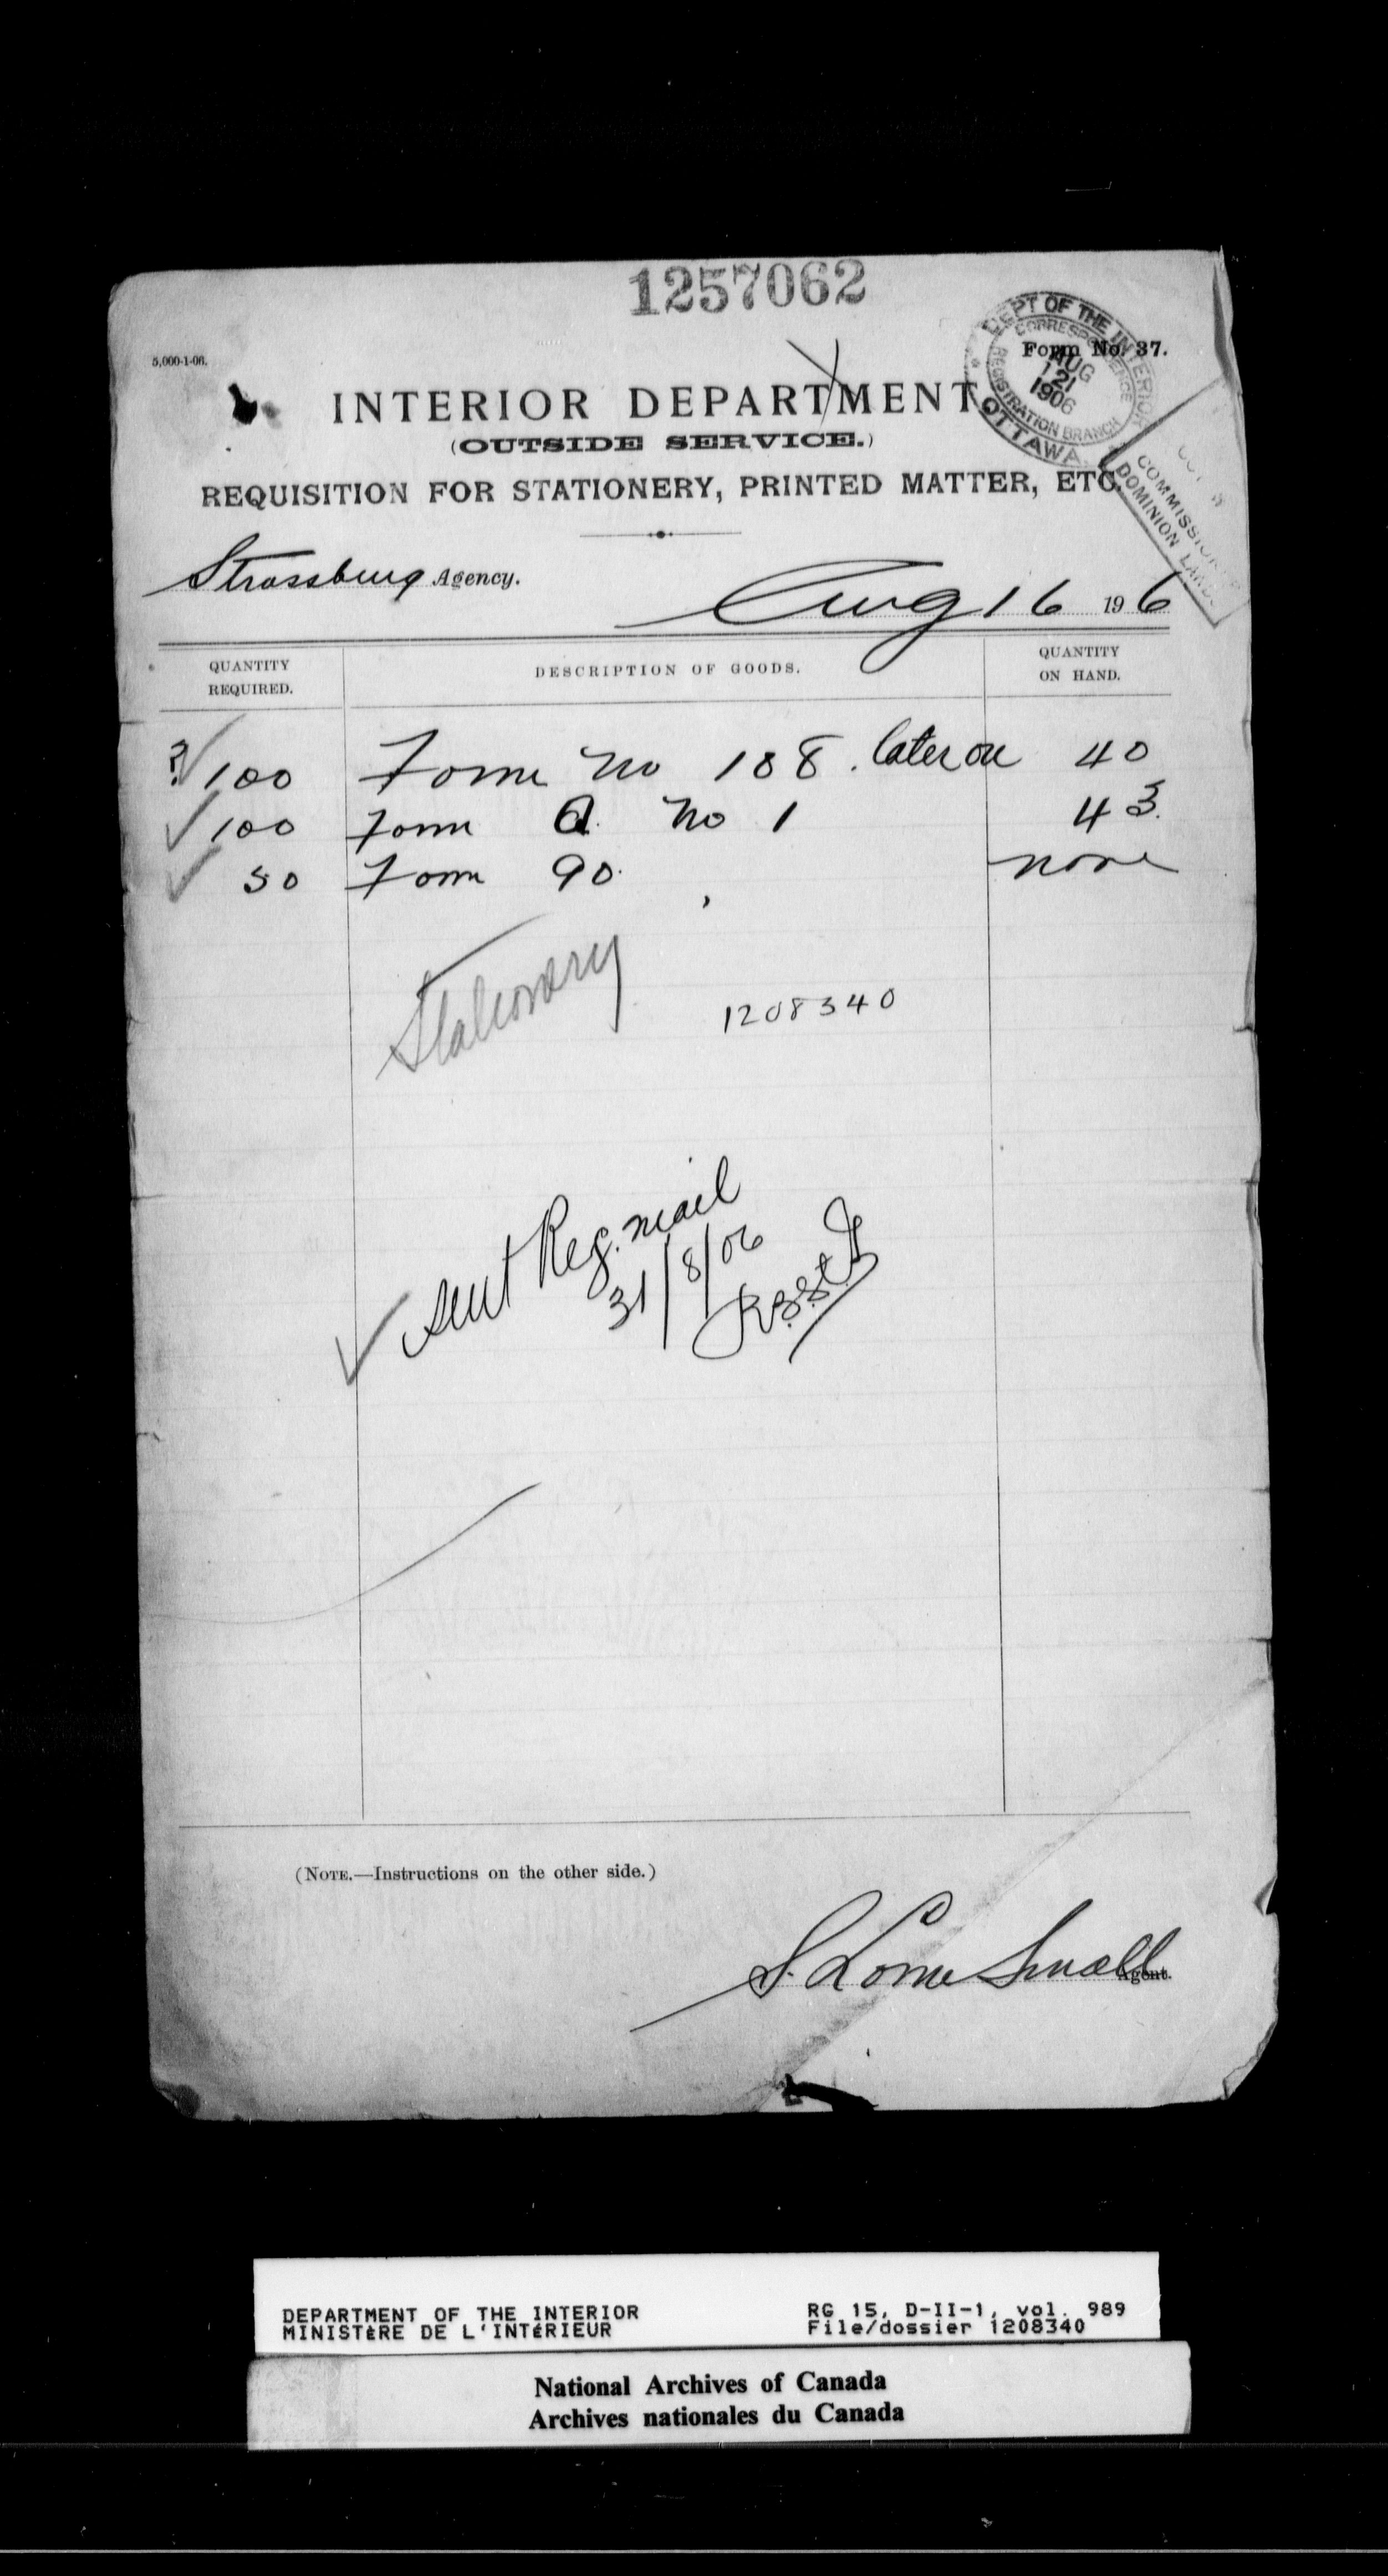 1257062
5,000-1-06.
Form No. 37.
DEPT OF THE INTERIOR
CORRESPONDENCE
AUG 21 1906
REGISTRATION BRANCH
OTTAWA
INTERIOR DEPARTMENT
(OUTSIDE SERVICE.)
REQUISITION FOR STATIONERY, PRINTED MATTER, ETC.
COMMISSIONER
DOMINION LANDS
Strassburg Agency.
Aug 16 1906
QUANTITY REQUIRED. DESCRIPTION OF GOODS. QUANTITY ON HAND.
? 100 Form No 188. later on 40
100 Form A. No 1 43.
50 Form 90. none
Stationery
1208340
Sent Reg. mail
31/8/06
(NOTE.—Instructions on the other side.)
S. Lorne Small
Agent.
DEPARTMENT OF THE INTERIOR RG 15, D-II-1, vol. 989
MINISTÈRE DE L'INTÉRIEUR File/dossier 1208340
National Archives of Canada
Archives nationales du Canada